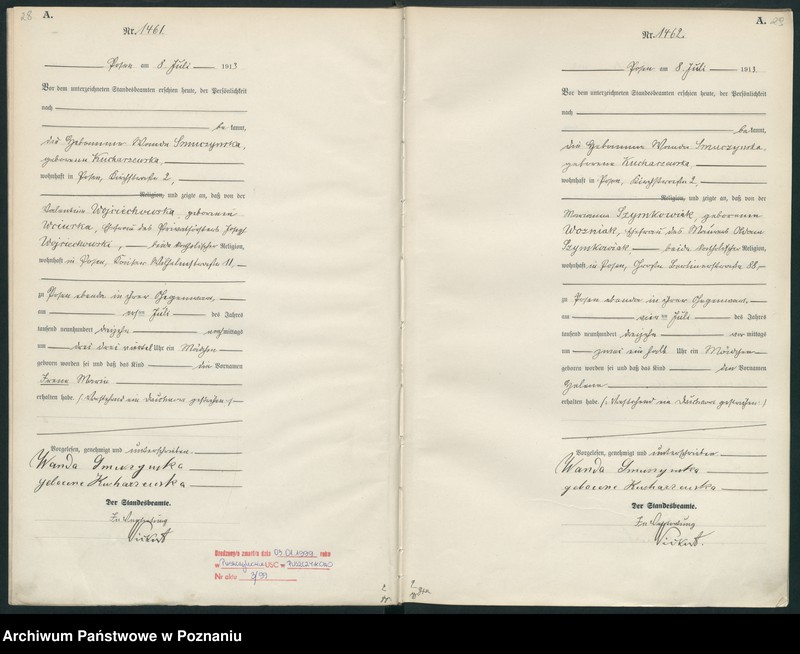 28
A.
Nr. 1461.
Posen am 8. Juli 1913
Vor dem unterzeichneten Standesbeamten erschien heute, der Persönlichkeit
nach
be kannt,
die Hebamme Wanda Smuczynska,
geborene Kucharzewska,
wohnhaft in Posen, 2,
Religion, und zeigte an, daß von der
Valentina Wojciechowska, geborenen
Ehefrau des Josef
Wojciechowski, beide katholischer Religion,
wohnhaft in Posen, 11,
zu Posen ebenda in ihrer Gegenwart,
am Juli des Jahres
tausend neunhundert dreizehn nachmittags
um drei drei viertel Uhr ein Mädchen
geboren worden sei und daß das Kind den Vornamen
Irene Maria
erhalten habe. (Vorstehend ein Druckwort gestrichen)
Vorgelesen, genehmigt und unterschrieben
Wanda Smuczynska
geborene Kucharzewska
Der Standesbeamte.
In Vertretung
03.01.1999 roku
w USC w
Nr aktu 2/99
A.
29
Nr. 1462.
Posen am 8. Juli 1913
Vor dem unterzeichneten Standesbeamten erschien heute, der Persönlichkeit
nach
be kannt,
die Hebamme Wanda Smuczynska
geborene Kucharzewska,
wohnhaft in Posen, 2,
Religion, und zeigte an, daß von der
Marianna Szymkowiak, geborenen
Wozniak, Ehefrau des Maurers
Szymkowiak, beide katholischer Religion,
wohnhaft in Posen, Große Berlinerstraße 88,
zu Posen ebenda in ihrer Gegenwart,
am vier ten Juli des Jahres
tausend neunhundert dreizehn vor mittags
um zwei ein halb Uhr ein Mädchen
geboren worden sei und daß das Kind den Vornamen
Helene
erhalten habe. (Vorstehend ein Druckwort gestrichen)
Vorgelesen, genehmigt und unterschrieben
Wanda Smuczynska
geborene Kucharzewska
Der Standesbeamte.
In Vertretung
Archiwum Państwowe w Poznaniu